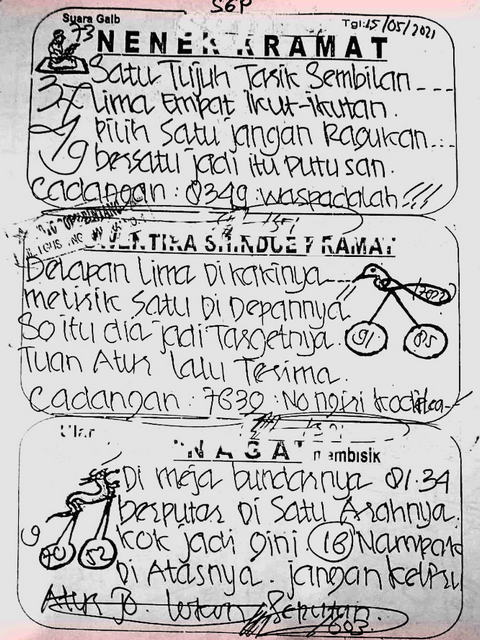 SGP
Suara Gaib
Tgl:15/05/2021
73
NENEK KRAMAT
Satu Tujuh Tarik Sembilan ---
Lima Empat ikut-ikutan.
Pilih Satu jangan Ragukan...
bersatu jadi itu Putusan.
Cadangan : 8349 : waspadalah !!!
KRAMAT
Delapan Lima Di kakinya
melirik Satu Di Depannya
So itu dia jadi Targetnya.
Tuan Atur lalu Terima.
91 85
Cadangan : 7639 : No ngiri
NAGA membisik
Di meja bundarnya 81.34
berputar Di Satu Arahnya.
kok jadi gini 16 Nampak
Di Atasnya. jangan keliru
9
70 52
Atur